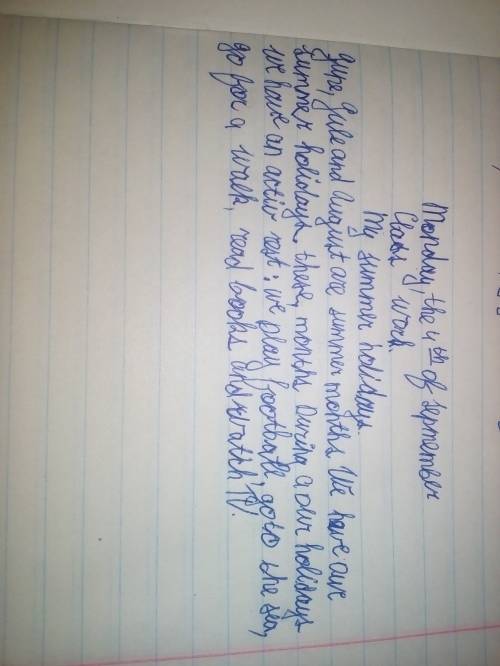 Monday, the 4th of september
Class work.
My summer holidays.
June, Jule and August are summer months. We have our
summer holidays these months. During a our holidays
we have an activ rest: we play football, go to the sea,
go for a walk, read books and watch TV.